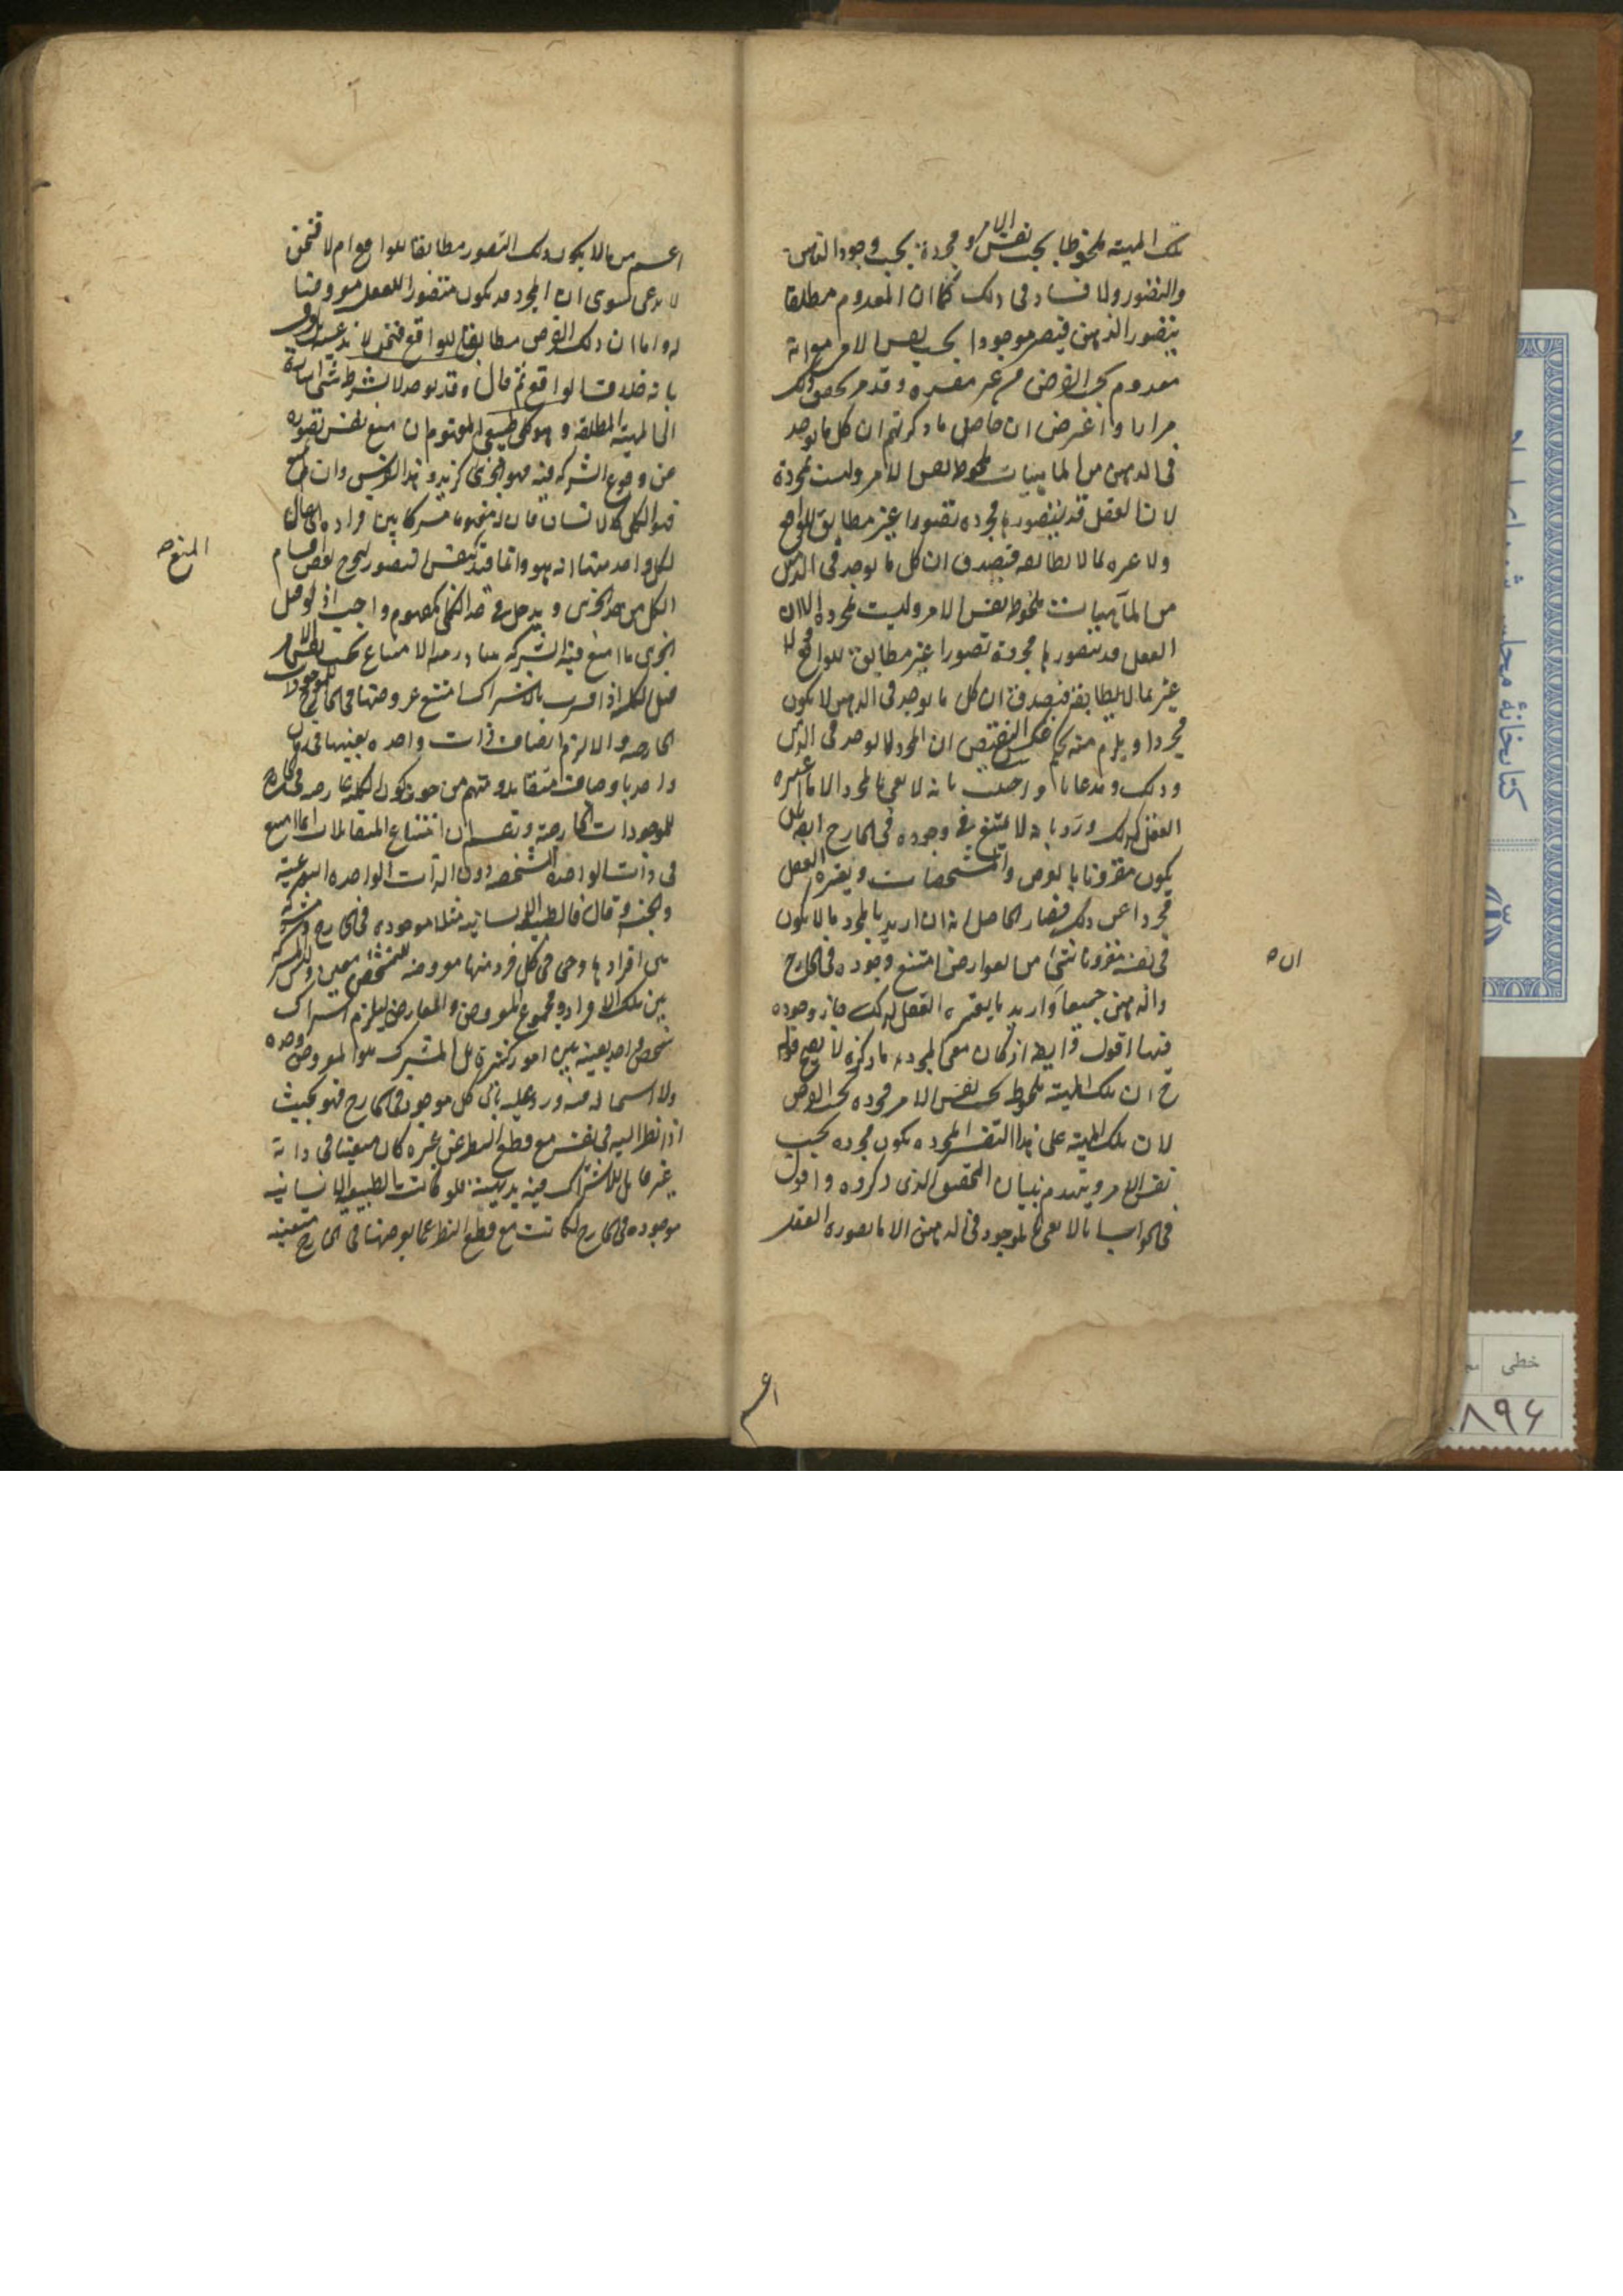 تلك المهية ملحوظة بحسب نفس الامر و مجردة بحسب وجود الذهن
والتصور ولا فساد فى ذلك كما ان المعدوم مطلقا
يتصور الذهن فيصير موجودا بحسب نفس الامر مع انه
معدوم بحسب الفرض من غير مفسدة وقد مر تحقيق ذلك
مرارا واعترض ان حاصل ما ذكرتم ان كل ما يوجد
فى الذهن من الماهيات مخلوط بنفس الامر وليست مجردة
لان العقل قد يتصورها مجرده تصورا غير مطابق للواقع
ولا عبره لما لا يطابقه فيصدق ان كل ما يوجد فى الذهن
من الماهيات مخلوط بنفس الامر وليست مجرده الا ان
العقل قد يتصورها مجردة تصورا غير مطابق للواقع ولا
عبرة بما لا يطابقه فيصدق ان كل ما يوجد فى الذهن لا يكون
مجردا ويلزم منه بحكم عكس النقيض ان المجرد لا يوجد فى الذهن
وذلك مدعانا واجيب بانه لا يعنى بالمجرد الا ما اعتبره
العقل كذلك ورد بانه لا يمتنع وجوده فى الخارج ايضا بان
يكون مقرونا بالعوارض والمشخصات ويعتبره العقل
مجردا عن ذلك فصار الحاصل انه ان اريد بالمجرد ما لا يكون
فى نفسه مقرونا بشئ من العوارض امتنع وجوده فى الخارج
والذهن جميعا وان اريد ما يعتبره العقل كذلك جاز وجوده
فيهما اقول وايضا اذ كان معنى المجرد ما ذكره لا يصح قوله
ح ان تلك المهية مخلوطة بحسب نفس الامر مجرده بحسب الفرض
لان تلك المهية على هذا التفسير المجرده يكون مجرده بحسب
نفس الامر وينهدم بنيان التحقيق الذى ذكروه واقول
فى الجواب انا لا نعنى بالموجود فى الذهن الا ما تصوره العقل
ان ه
اعم
اعم من ان لا يكون ذلك التصور مطابقا للواقع ام لا فنحن
لا ندعى سوى ان المجرد قد يكون متصورا للعقل مفروضا
له واما ان ذلك الفرض مطابق للواقع فنحن لا ندعيه
بانه خلاف الواقع ثم قال وقد يوجد لا بشرط شئ اشارة
الى المهية المطلقة وهو كلى طبيعى المفهوم ان منع نفس تصوره
من وقوع الشركة فيه فهو الجزئى كزيد وهذا الفرس وان لم يمنع
فهو الكلى كالانسان فان له مفهوما مشتركا بين افراده
لكل واحد منها انه هو وانما قيد بنفس التصور ليخرج بعض اقسام
الكلى من حد الجزئى و يدخل فى حد الكلى كمفهوم واجب اذ لو قيل
الجزئى ما امتنع فيه الشركة يتبادر منه الامتناع بحسب نفس الامر
قيل الكلية اذا فسرت بالاشتراك امتنع عروضها فى الخارج للموجودات
الخارجة والا لزم اتصاف ذات واحده بعينها فى زمان
واحد باوصاف متقابلة ومنهم من جوز كون الكلية عارضه فى الخارج
للموجودات الخارجة وزعم ان امتناع المتقابلات انما امتنع
فى ذات الواحدة الشخصية دون الذات الواحده النوعية
والجنسية وقال فالطبيعة الانسانية مثلا موجوده فى الخارج مشتركة
بين افرادها وهى فى كل فرد منها معروضه لتشخص معين وليس المشترك
بين تلك الافراد مجموع المعروض والعارض ليلزم اشتراك
شخص واحد بعينه بين امور كثيرة بل المشترك هو المعروض وحده
ولا استحالة فيه ورد عليه بان كل موجود فى الخارج فهو بحيث
اذا نظر اليه فى نفسه مع قطع النظر عن غيره كان متعينا فى ذاته
غير قابل للاشتراك فيه بديهية فلو كانت الطبيعة الانسانية
موجوده فى الخارج لكانت مع قطع النظر عما يعرضها فى الخارج متعينه
كتابخانۀ مجلس شورای
خطی
۸۹۶